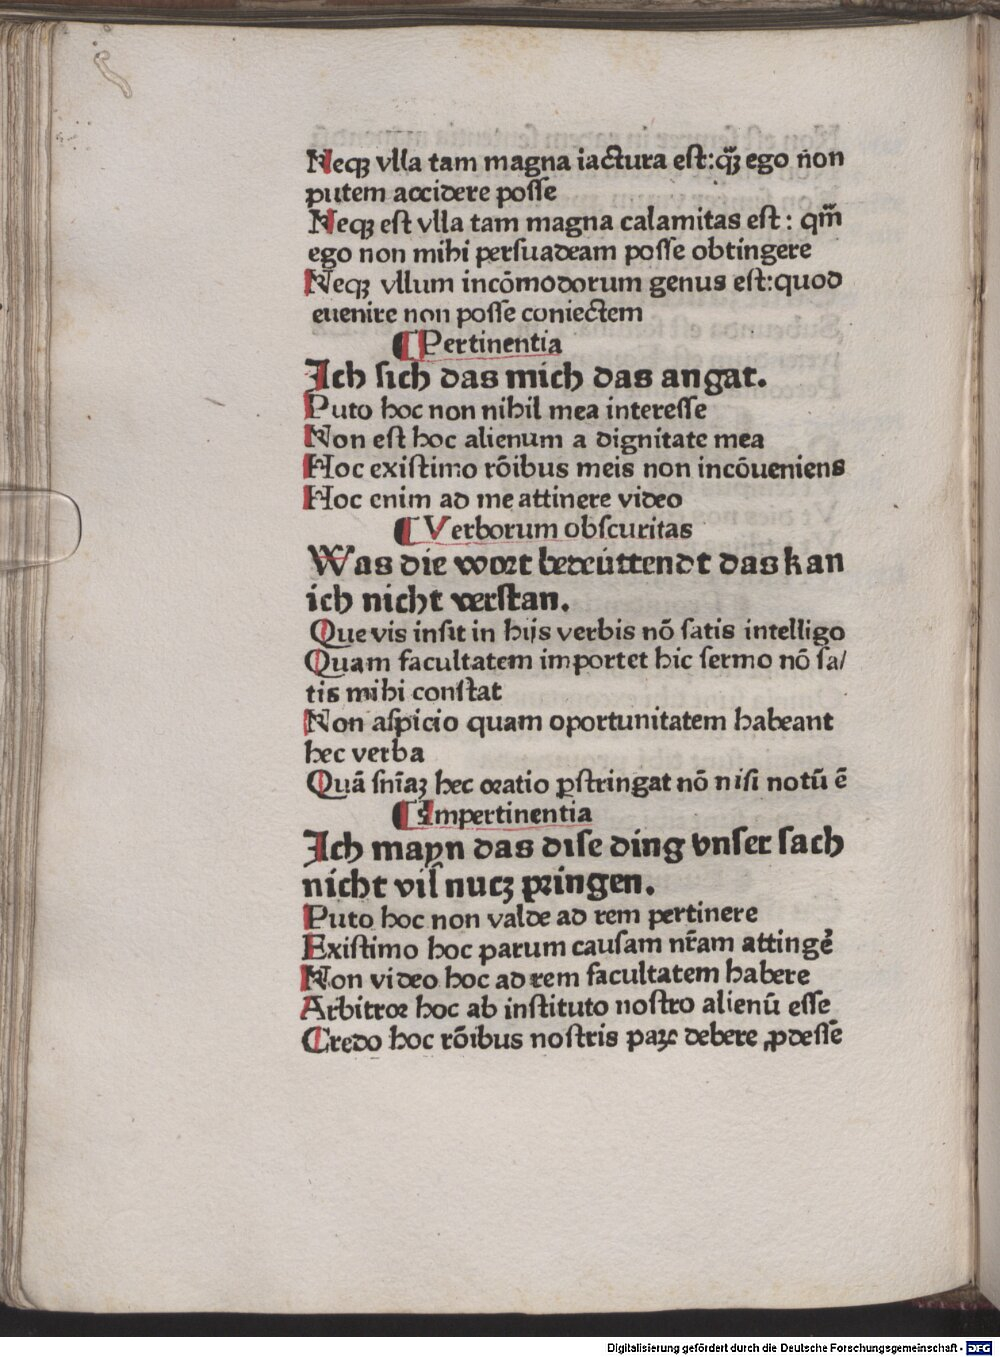 Neqꝫ vlla tam magna iactura eſt:qꝫ̃ ego non
putem accidere poſſe
Neqꝫ est vlla tam magna calamitas eſt : qm̃
ego non mihi perſuadeam poſſe obtingere
Neqꝫ vllum incõmodorum genus eſt:quod
euenire non poſſe coniectem
¶ Pertinentia
Ich ſich das mich das angat.
Puto hoc non nihil mea intereſſe
Non eſt hoc alienum a dignitate mea
Hoc exiſtimo rõibus meis non incõueniens
Hoc enim ad me attinere video
¶ Verborum obſcuritas
Was die wort bedeúttendt das kan
ich nicht verſtan.
Que vis inſit in hijs verbis nõ ſatis intelligo
Quam facultatem importet hic ſermo nõ ſa/
tis mihi conſtat
Non aſpicio quam oportunitatem habeant
hec verba
Quã ſnĩaꝫ hec oratio ꝑſtringat nõ niſi notũ ẽ
¶ Impertinentia
Ich mayn das diſe ding vnſer ſach
nicht vil nucz pringen.
Puto hoc non valde ad rem pertinere
Exiſtimo hoc parum cauſam nr̃am attingẽ
Non video hoc ad rem facultatem habere
Arbitror hoc ab inſtituto noſtro alienũ eſſe
Credo hoc rõibus noſtris paꝝ debere ꝓdeſſe
Digitalisierung gefördert durch die Deutsche Forschungsgemeinschaft - DFG